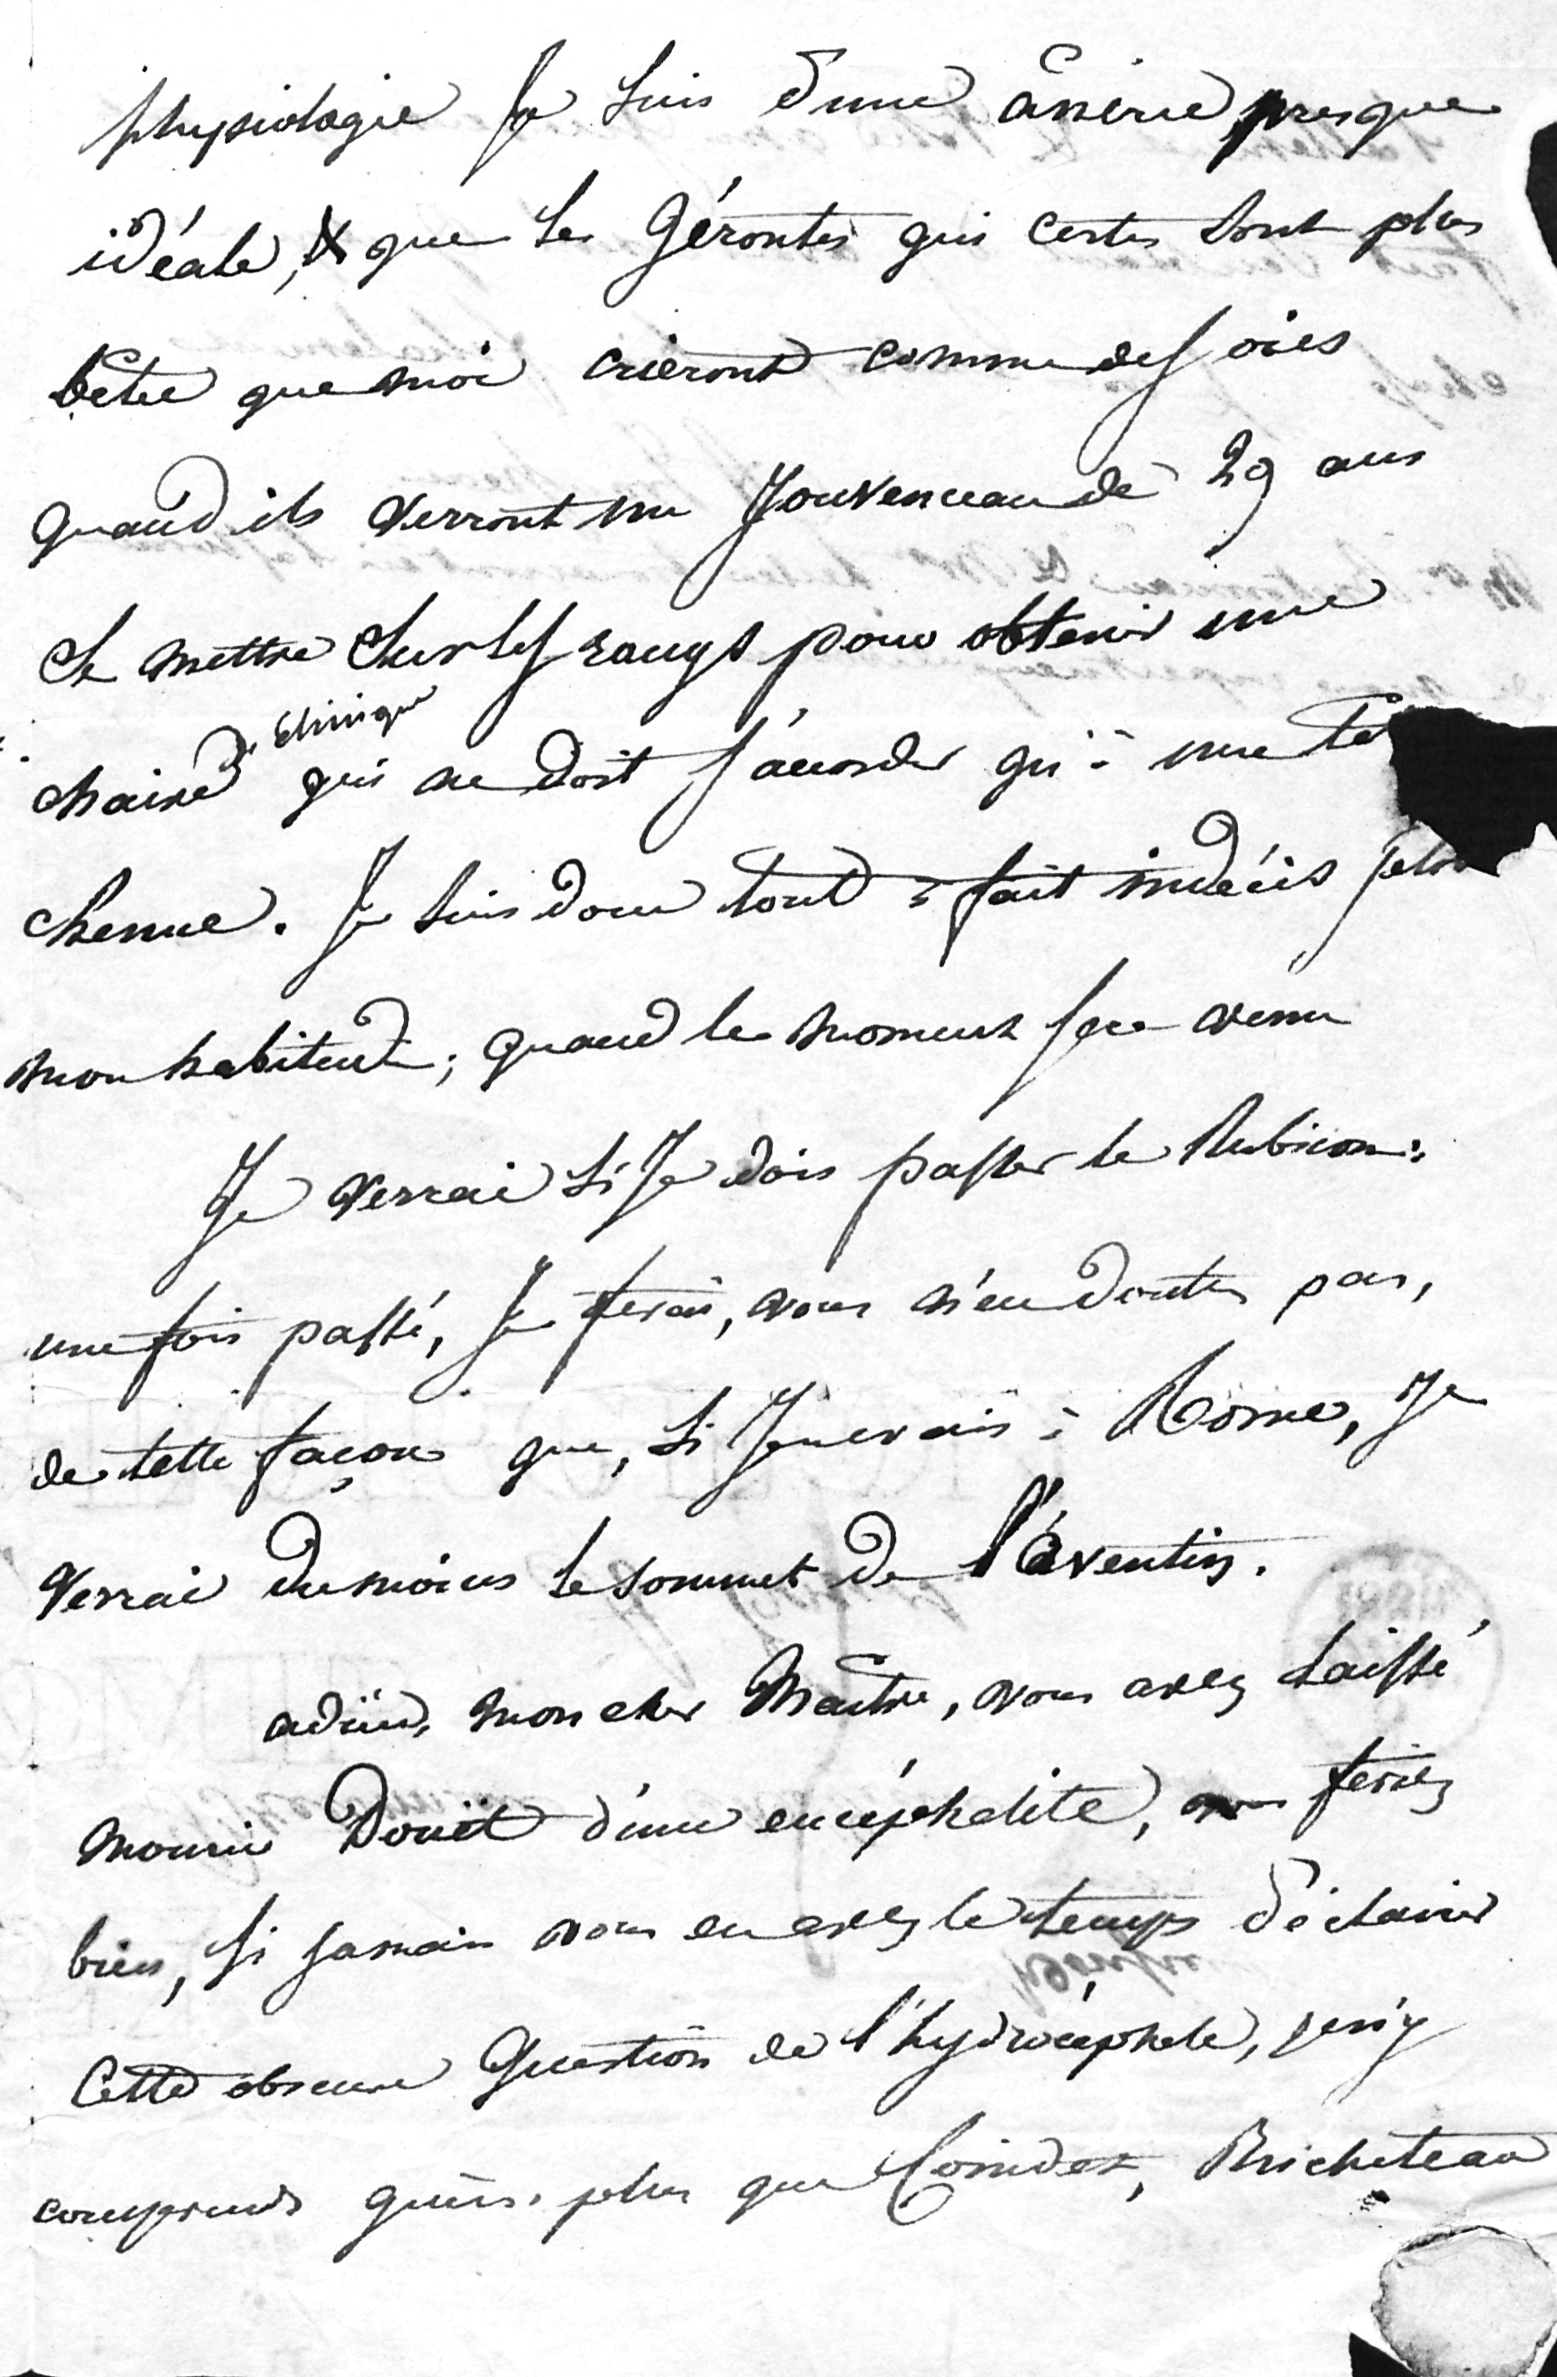 physiologie je suis d'une ânerie presque
idéale, & que les Gérontes qui certes sont plus
bête que moi crieront comme des oies
quand ils verront un Jouvenceau de 29 ans
se mettre sur les rangs pour obtenir une
clinique
chaire qui ne doit s'accorder qu'à une tê
chenue. Je suis donc tout à fait indécis selon
mon habitude; quand le moment sera venu
Je verrai si je dois passer le Rubicon:
une fois passé, Je ferai, vous n'en doutez pas,
de telle façon que, si Je ne vais à Rome, Je
verrai du moins le sommet de l'Aventin.
adieu, mon cher Maître, vous avez laissé
mourir Douët d'une encéphalite, vous feriez
bien, si jamais vous en avez le temps d'éclairer
cette obscure question de l'hydrocéphale, je n'y
comprends guère plus que Coindet, Bricheteau